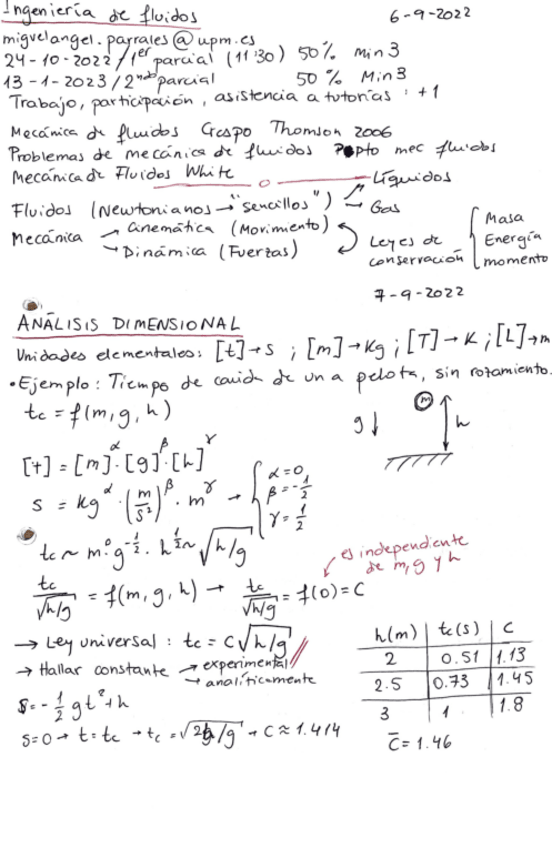 Ingeniería de fluidos 6-9-2022
miguelangel.parrales@upm.es
24-10-2022 / 1er parcial (11:30) 50% Min 3
13-1-2023 / 2ndo parcial 50% Min 3
Trabajo, participación, asistencia a tutorías: +1
Mecánica de fluidos Crespo Thomson 2006
Problemas de mecánica de fluidos Dpto mec fluidos
Mecánica de Fluidos White
Fluidos (Newtonianos → "sencillos") → Líquidos
→ Gas
Mecánica → Cinemática (Movimiento)
→ Dinámica (Fuerzas)
Leyes de conservación { Masa
Energía
momento
7-9-2022
ANÁLISIS DIMENSIONAL
Unidades elementales: [t]→s ; [m]→Kg ; [T]→K ; [L]→m
• Ejemplo: Tiempo de caída de una pelota, sin rozamiento.
tc = f(m, g, h)
m g↓ h
[t] = [m]^α · [g]^β · [h]^γ
s = Kg^α · (m/s²)^β · m^γ → { α = 0
β = -1/2
γ = 1/2
tc ~ m^0 · g^(-1/2) · h^(1/2) ~ √(h/g)
es independiente de m, g y h
tc/√(h/g) = f(m, g, h) → tc/√(h/g) = f(0) = C
→ Ley universal: tc = C√(h/g)
→ Hallar constante → experimental
→ analíticamente
s = -1/2 gt² + h
s=0 → t = tc → tc = √(2h/g) → C ≈ 1.414
h(m) | tc(s) | C
2 | 0.51 | 1.13
2.5 | 0.73 | 1.45
3 | 1 | 1.8
C̄ = 1.46